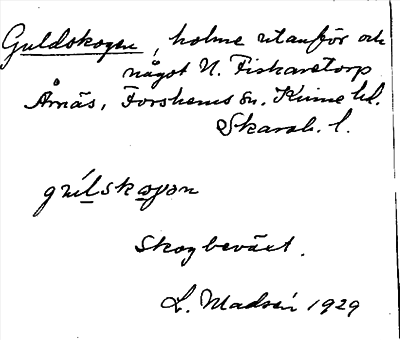 Guldskogen, holme utanför och
något N. Fiskaretorp
Årnäs, Forshems sn. Kinne hd.
Skarab. l.
skogbeväxt.
L. Madsén 1929